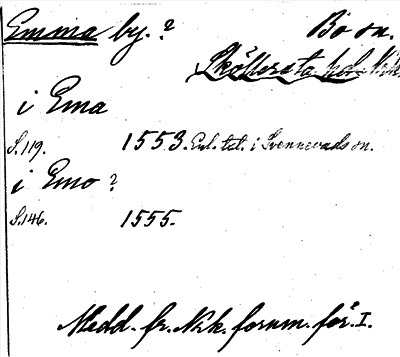 Emma by.? Bo sn.
Sköllersta hd. Nke.
i Ema
S.119. 1553. Enl. tit. i Svennevads sn.
i Emo ?
S.146. 1555.
Medd. fr. Nrk. fornm. för. I.